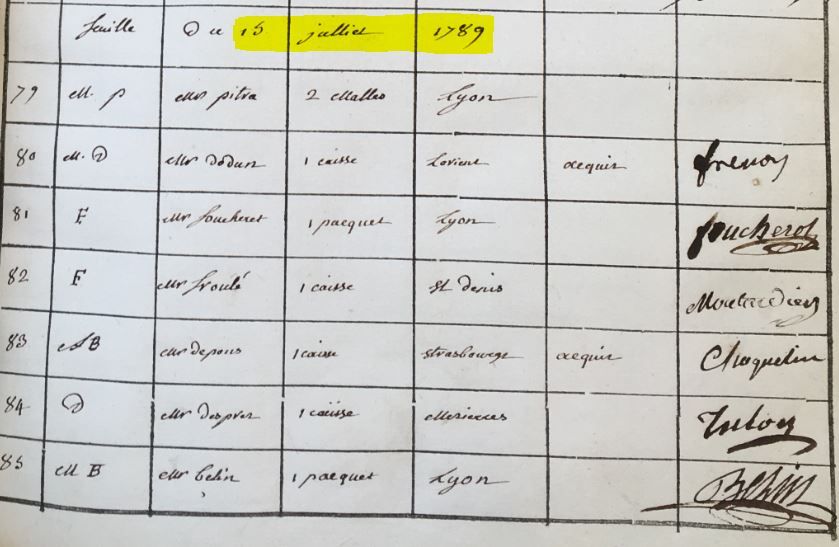 feuille Du 15 julliet 1789
79 M. p Mr pitra 2 Malles Lyon
80 M. D Mr dodun 1 caisse Lorient acquis
81 F Mr foucheret 1 pacquet Lyon foucherot
82 F Mr froulé 1 caisse St denis
83 AB Mr depons 1 caisse strasbourg acquis Choquelin
84 D Mr desprez 1 caisse Mezierres
85 M B Mr belin 1 pacquet Lyon Belin